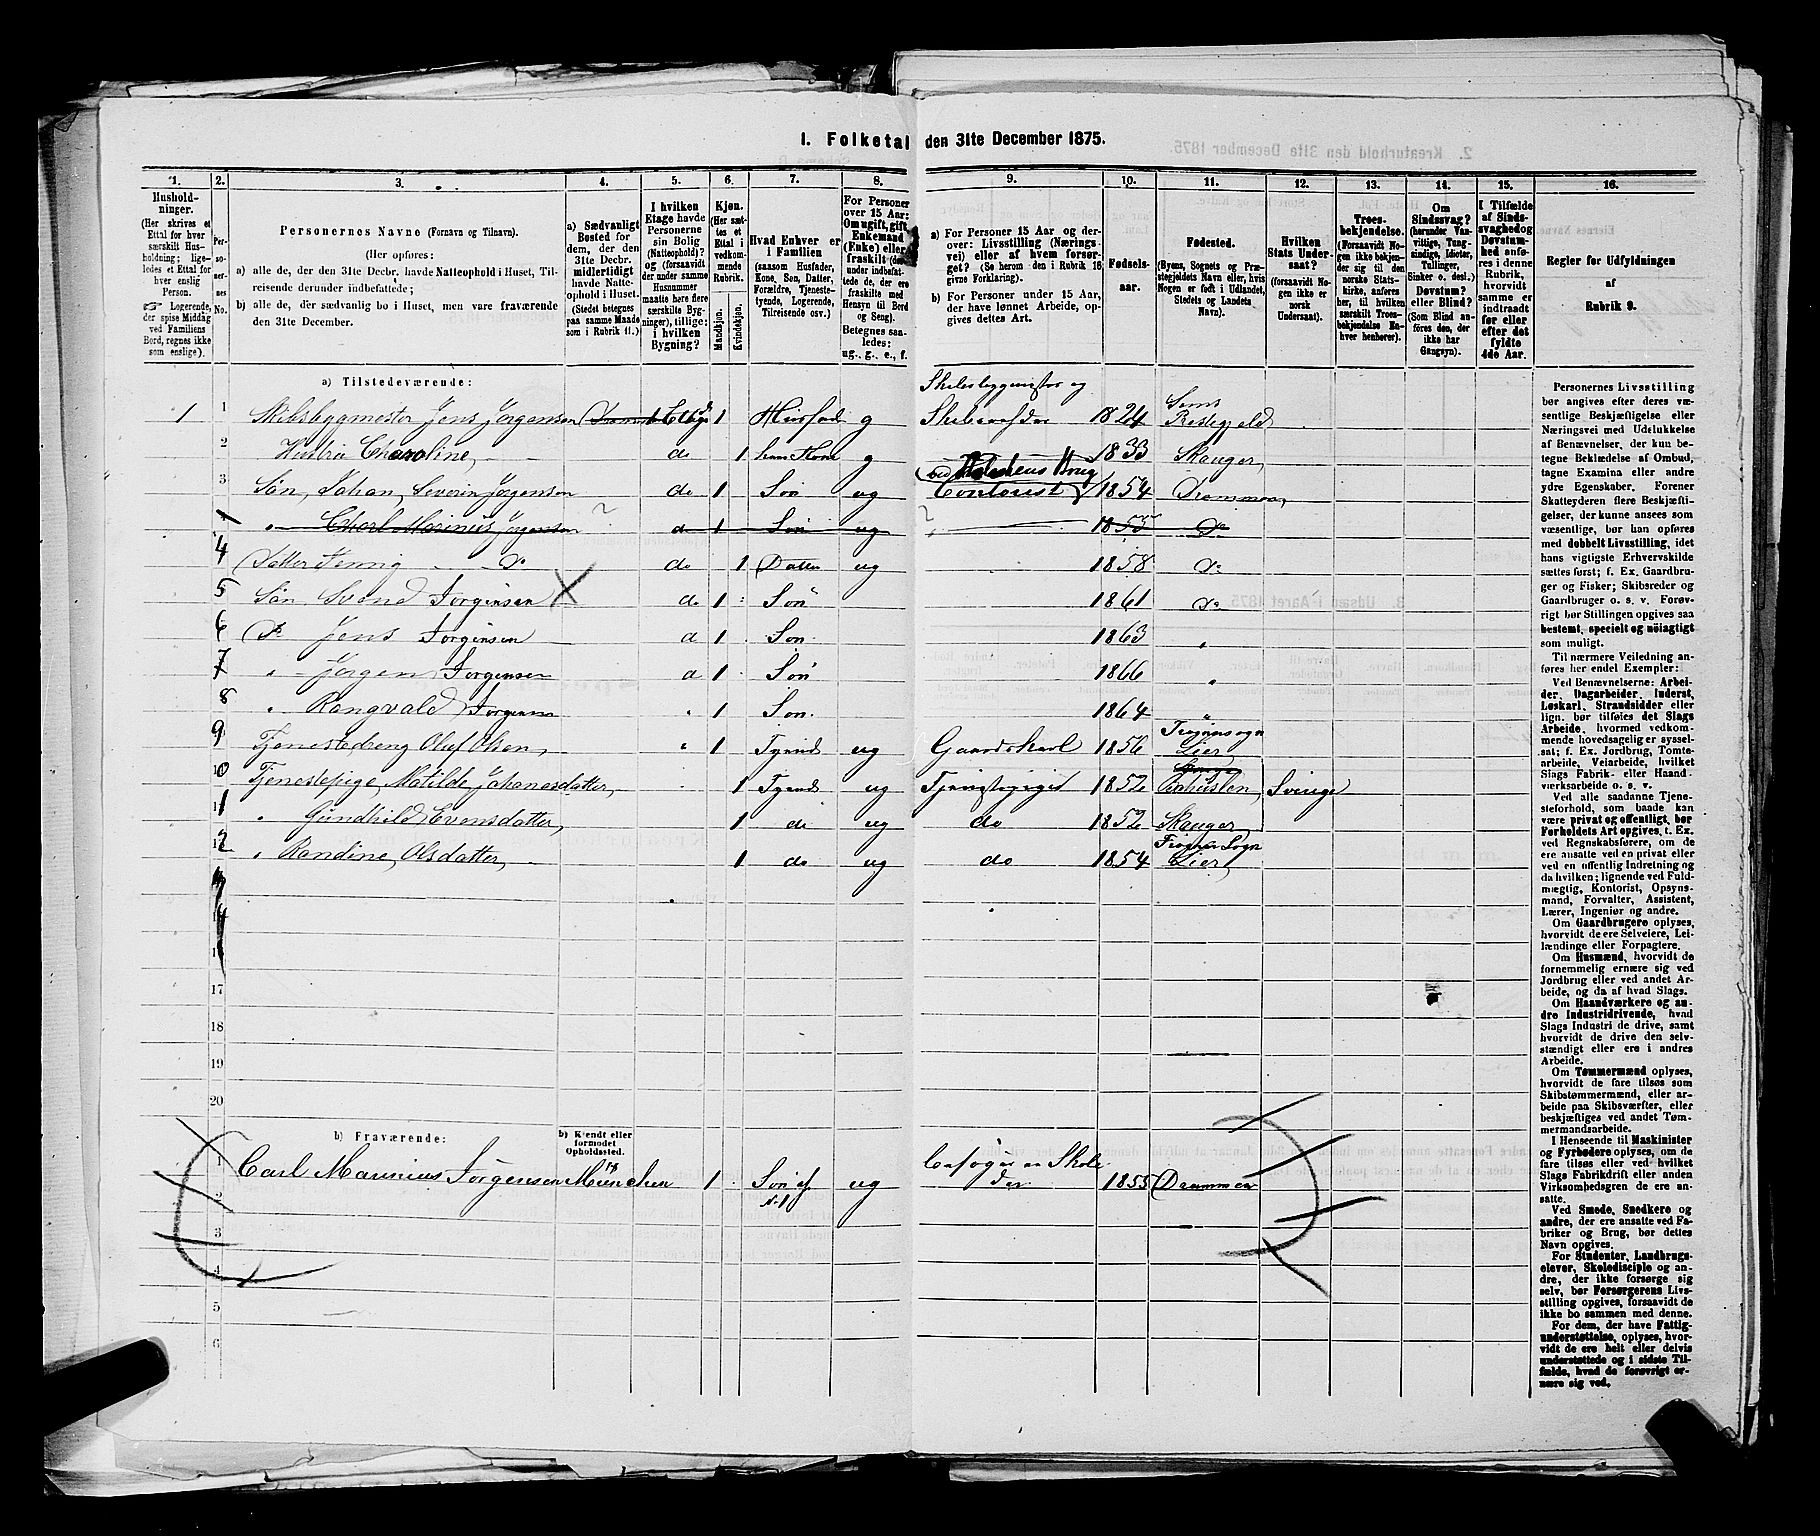 I. Folketal den 31te December 1875.
1. 2. 3. 4. 5. 6. 7. 8. 9. 10. 11. 12. 13. 14. 15. 16.
Husholdninger. (Her skrives et Ettal for hver særskilt Husholdning; ligeledes et Ettal for hver enslig Person. ☞ Logerende, der spise Middag ved Familiens Bord, regnes ikke som enslige).
Personernes No.
Personernes Navne (Fornavn og Tilnavn).
(Her opføres:
a) alle de, der den 31te Decbr. havde Natteophold i Huset, Tilreisende derunder indbefattede;
b) alle de, der sædvanlig bo i Huset, men vare fraværende den 31te December.
a) Sædvanligt Bosted for dem, der den 31te Decbr. midlertidigt havde Natteophold i Huset. (Stedet betegnes paa samme Maade som i Rubrik 11.)
I hvilken Etage havde Personerne sin Bolig (Natteophold)? og (forsaavidt der under samme Husnummer maatte høre flere særskilte Bygninger), tillige: i hvilken Bygning?
Kjøn. (Her sættes et Ettal i vedkommende Rubrik. Mandkjøn. Kvindekjøn.
Hvad Enhver er i Familien (saasom Husfader, Kone, Søn, Datter, Forældre, Tjenestetyende, Logerende, Tilreisende osv.)
For Personer over 15 Aar: Om ugift, gift, Enkemand (Enke) eller fraskilt (derunder indbefattede de, der ere fraskilte med Hensyn til Bord og Seng). Betegnes saaledes: ug., g., e., f.
a) For Personer 15 Aar og derover: Livsstilling (Næringsvei) eller af hvem forsørget? (Se herom den i Rubrik 16 givne Forklaring).
b) For Personer under 15 Aar, der have lønnet Arbeide, opgives dettes Art.
Fødselsaar.
Fødested. (Byens, Sognets og Præstegjeldets Navn eller, hvis Nogen er født i Udlandet, Stedets og Landets Navn).
Hvilken Stats Undersaat? (forsaavidt Nogen ikke er norsk Undersaat).
Troesbekjendelse. (Forsaavidt Nogen ikke bekjender sig til den norske Statskirke, anføres her, til hvilken særskilt Troesbekjendelse Enhver henhører).
Om Sindssvag? (herunder Vanvittige, Tungsindige, Idioter, Tullinger, Sinker o. desl.) Døvstum? eller Blind? (Som Blind anføres den, der ikke har Gangsyn).
I Tilfælde af Sindssvaghed og Døvstumhed anføres i denne Rubrik, hvorvidt samme er indtraadt før eller efter det fyldte 4de Aar.
Regler for Udfyldningen af Rubrik 9.
a) Tilstedeværende:
1 1 Skibsbygmester Jens Jørgensen 1 Etage 1 Husfad g Skibsbyggmester og 1824 Sems Prestegjeld
2 Hustru Charoline, do 1 hans Kone g 1833 Skauger,
3 Søn, Johan, Severin Jørgensen do 1 Søn ug Contorist ved Brug 1854 Drammen,
" Charl Marinius Jørgensen d 1 Søn ug 1855 Do
4 Datter Jennig Do do 1 Datter ug 1858 Do
5 Søn Svend Jørgensen do 1 Søn 1861 Do
6 Do Jens Jørgensen d 1 Søn 1863 "
7 " Jørgen Jørgensen d 1 Søn 1866 "
8 " Rangvald Jørgensen " 1 Søn. 1864 "
9 Tjenestedreng Oluf Olsen, " 1 Tyende ug Gaardskarl 1856 Lier
10 Tjenestepige, Matilde Johanesdatter, 1 Tyende ug Tjenestepige 1852 Sverige
11 " Gundhild Evensdatter, 1 do ug do 1852 Skauger,
12 " Randine, Olsdatter, 1 do ug do 1854 Frogner Sogn Lier,
17
18
19
20
b) Fraværende:
b) Kjendt eller formodet Opholdssted.
1 Carl Marinius Jørgensen München 1 Søn af N. 1 ug besøger en Skole der 1855 Drammen
2
3
4
5
6
Personernes Livsstilling bør angives efter deres væsentlige Beskjæftigelse eller Næringsvei med Udelukkelse af Benævnelser, der kun betegne Beklædelse af Ombud, tagne Examina eller andre ydre Egenskaber. Forener Skatteyderen flere Beskjæftigelser, der kunne ansees som væsentlige, bør han opføres med dobbelt Livsstilling, idet hans vigtigste Erhvervskilde sættes først; f. Ex. Gaardbruger og Fisker; Skibsreder og Gaardbruger o. s. v. Forøvrigt bør Stillingen opgives saa bestemt, specielt og nöiagtigt som muligt.
Til nærmere Veiledning anføres her endel Exempler:
Ved Benævnelserne: Arbeider, Dagarbeider, Inderst, Løskarl, Strandsidder eller lign. bør tilføies det Slags Arbeide, hvormed vedkommende hovedsagelig er sysselsat; f. Ex. Jordbrug, Tomtearbeide, Veiarbeide, hvilket Slags Fabrik- eller Haandværksarbeide o. s. v.
Ved alle saadanne Tjenesteforhold, som baade kan være privat og offentligt, bør Forholdets Art opgives, t. Ex. ved Regnskabsførere, om de ere ansatte ved en privat eller ved en offentlig Indretning og da hvilken; lignende ved Fuldmægtig, Kontorist, Opsynsmand, Forvalter, Assistent, Lærer, Ingeniør og andre.
Om Gaardbrugere oplyses, hvorvidt de ere Selveiere, Leilændinge eller Forpagtere.
Om Husmænd, hvorvidt de fornemmelig ernære sig ved Jordbrug eller ved andet Arbeide, og da af hvad Slags.
Om Haandværkere og andre Industridrivende, hvad Slags Industri de drive, samt hvorvidt de drive den selvstændigt eller ere i andres Arbeide.
Om Tømmermænd oplyses, hvorvidt de fare tilsøs som Skibstømmermænd, eller arbeide paa Skibsværfter, eller beskjæftiges ved andet Tømmermandsarbeide.
I Henseende til Maskinister og Fyrbødere oplyses, om de fare tilsøs eller ved hvilket Slags Fabrikdrift eller anden Virksomhedsgren de ere ansatte.
Ved Smede, Snedkere og andre, der ere ansatte ved Fabriker og Brug, bør dettes Navn opgives.
For Studenter, Landbrugselever, Skoledisciple og andre, der ikke forsørge sig selv, bør Forsørgerens Livsstilling opgives, forsaavidt de ikke bo sammen med denne.
For dem, der have Fattigunderstøttelse, oplyses, hvorvidt de ere helt eller delvis understøttede og i sidste Tilfælde, hvad de forøvrigt ernære sig ved.